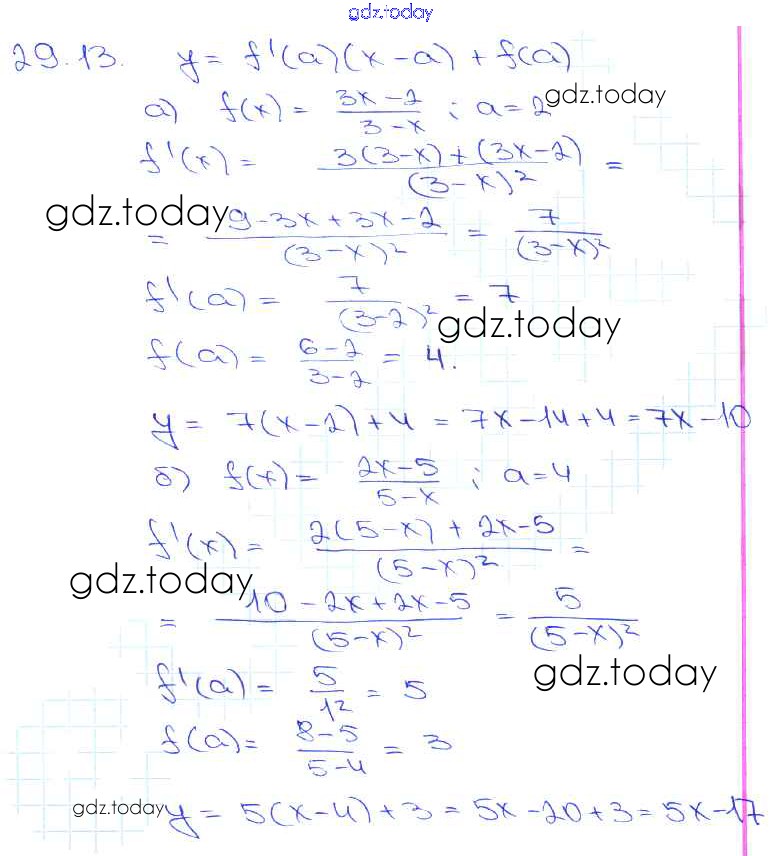 gdz.today
29.13. y = f'(a)(x-a) + f(a)
а) f(x) = (3x-2)/(3-x) ; a=2 gdz.today
f'(x) = (3(3-x)+(3x-2))/(3-x)² =
gdz.today
= (9-3x+3x-2)/(3-x)² = 7/(3-x)²
f'(a) = 7/(3-2)² = 7
gdz.today
f(a) = (6-2)/(3-2) = 4.
y = 7(x-2)+4 = 7x-14+4 = 7x-10
б) f(x) = (2x-5)/(5-x) ; a=4
f'(x) = (2(5-x)+2x-5)/(5-x)² =
gdz.today
= (10-2x+2x-5)/(5-x)² = 5/(5-x)²
gdz.today
f'(a) = 5/1² = 5
f(a) = (8-5)/(5-4) = 3
gdz.today
y = 5(x-4)+3 = 5x-20+3 = 5x-17